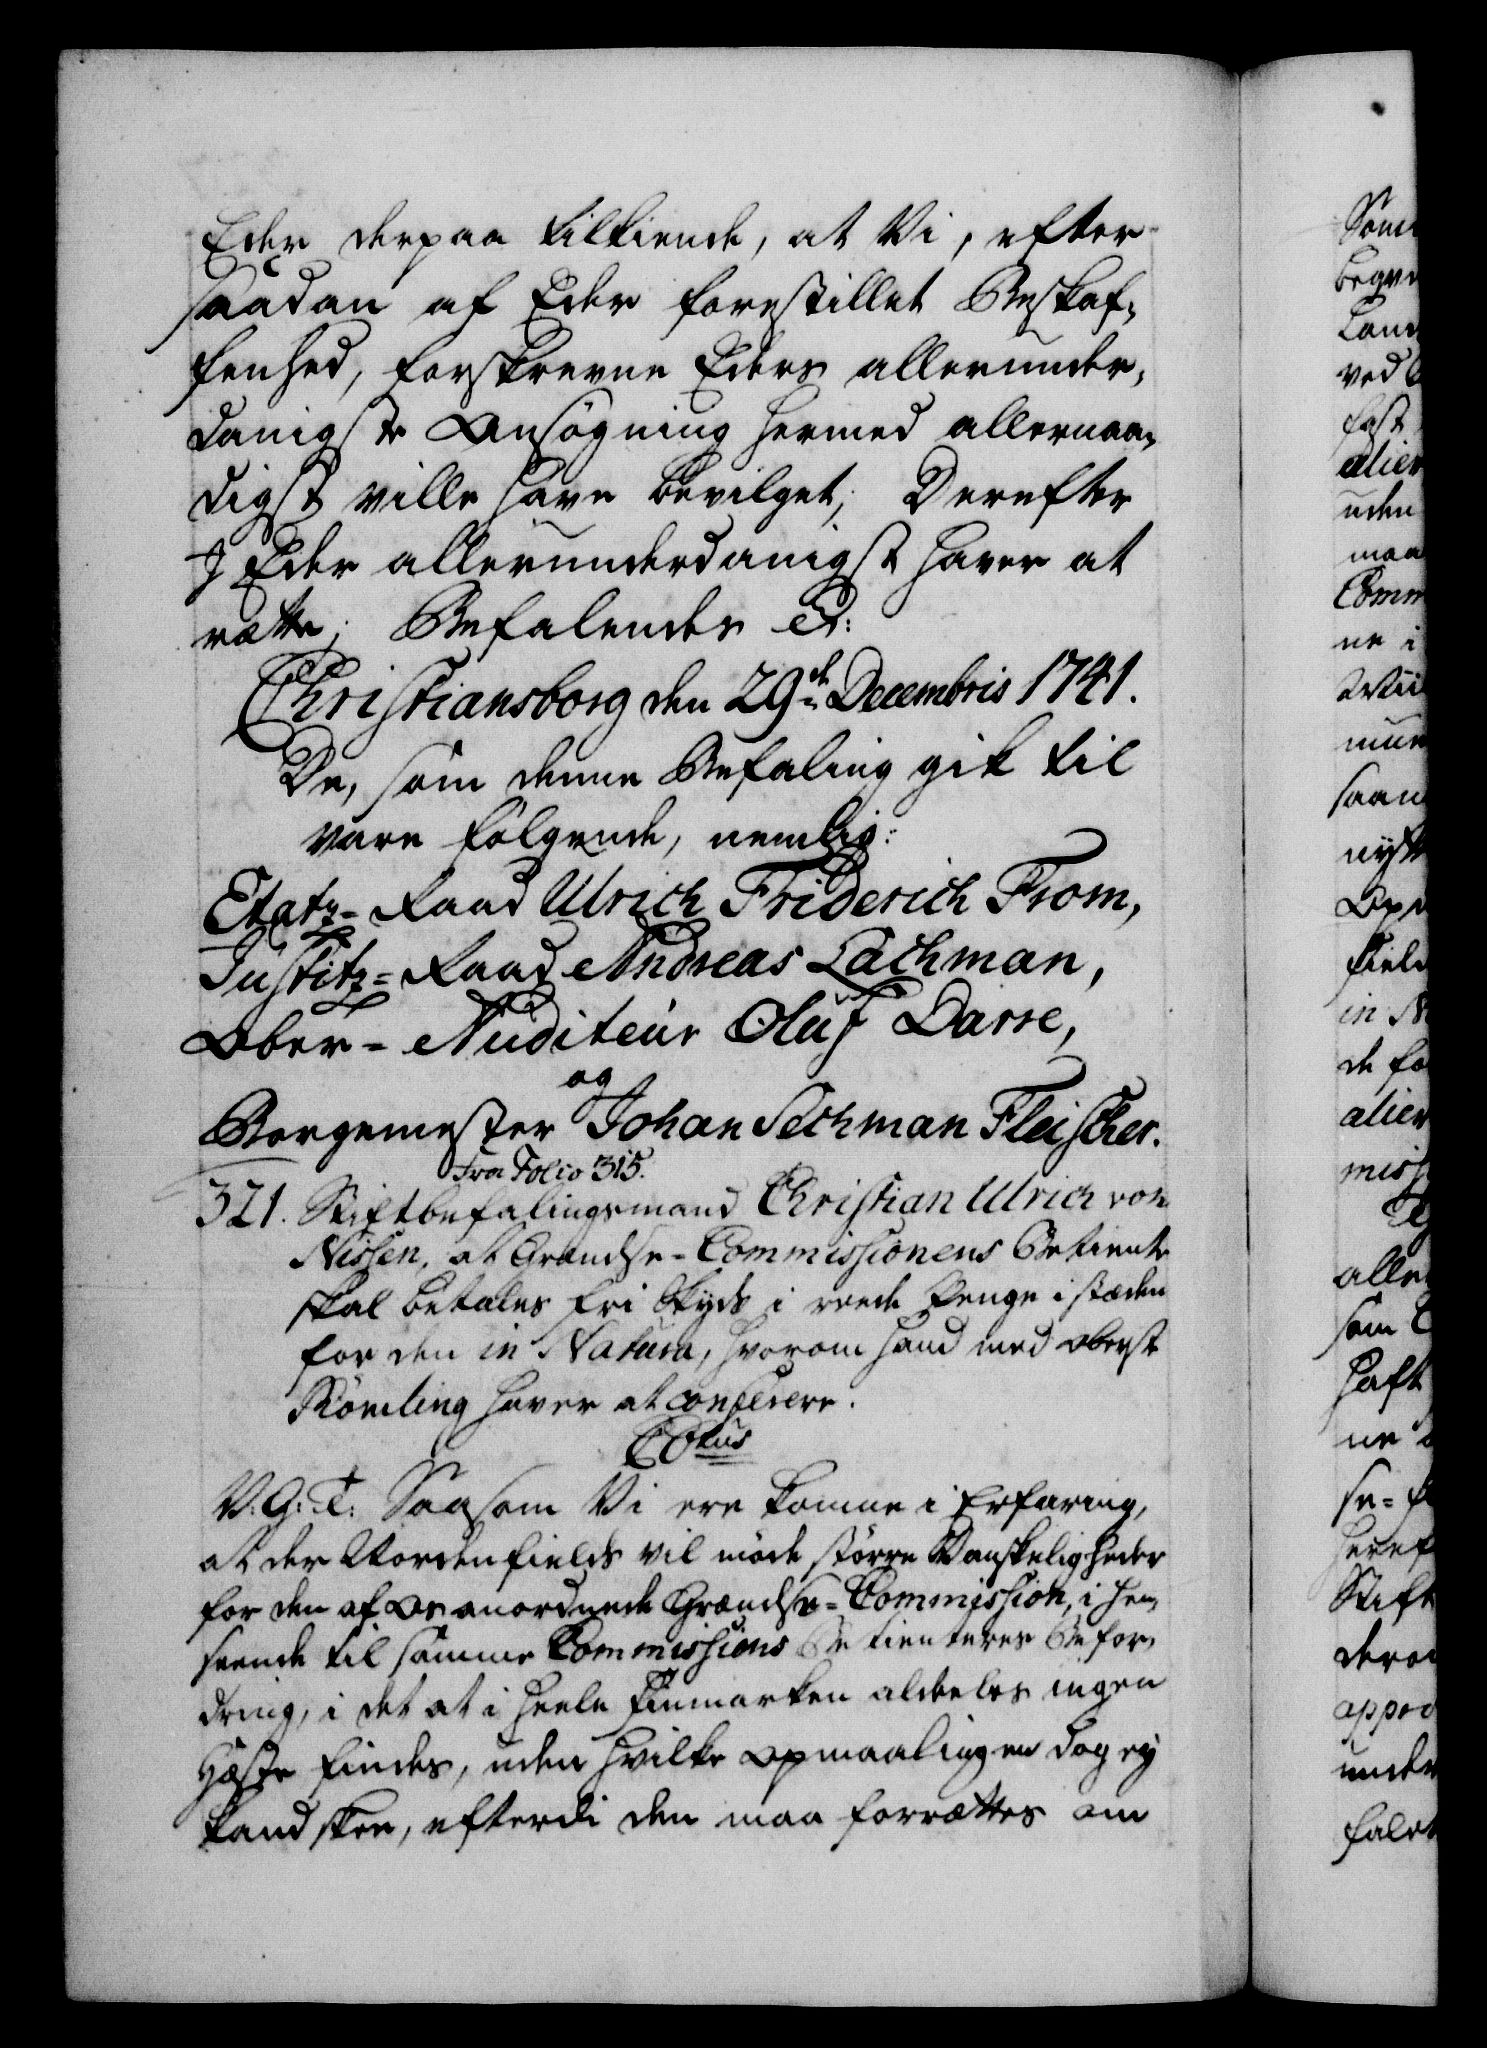 Eder derpaa tilkiende, at Vi, efter
saadan af Eder forestillet Beskaf-
fenhed, forskrevne Eders allerunder-
danigste Ansøgning hermed allernaa-
digst ville have bevilget; Derefter
I Eder allerunderdanigst haver at
rætte; Befalendes &:
Christiansborg den 29de Decembris 1741.
De, som denne Befaling gik til
vare følgende, nemlig:
Etatz-Raad Ulrich Friderich From,
Justitz-Raad Andreas Lachman,
Ober-Auditeur Oluf Darre,
og
Borgemester Johan Sechman Fleischer.
Fra Folio 315.
321. Stiftbefalingsmand Christian Ulrich von
Nissen, at Grændse-Commissionens Betiente
skal betales fri Skyds i reede Penge i stæden
for den in Natura, hvorom hand med Oberst
Römling haver at conferere.
V: G: T: Saasom Vi ere komne i Erfaring,
at der Nordenfields vil møde større Vanskeligheder
for den af Os anordnede Grændse-Commission, i hen-
seende til samme Commissions Betienteres Befor-
dring, i det at i heele Finmarken aldeeles ingen
Hæste findes, uden hvilke Opmaalingen dog ey
kand skee, efterdi den maa forrættes om
Som
begve
Land
ved
fast
alier
uden
maa
Comm
ne i
mun
saan
nytt
in N
de fo
alier
miss
alle
som
haft
ne
se-
heref
Stift
dero
appro
under
falet